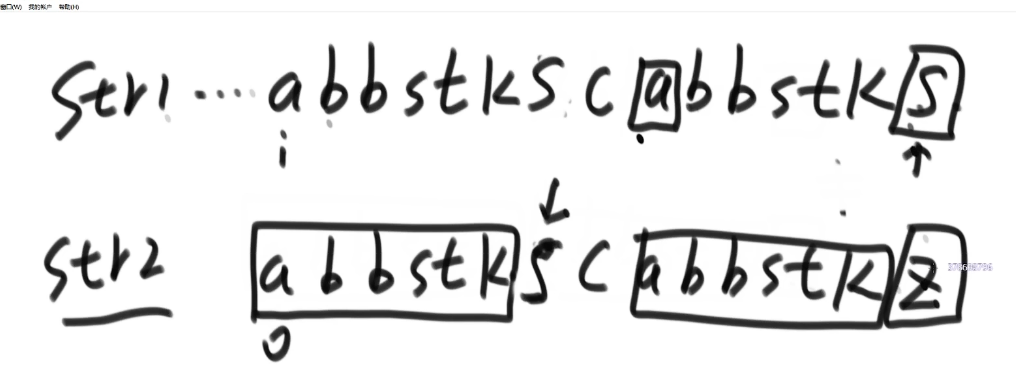 窗口(W) 我的帐户 帮助(H)
str1 ···· a b b s t k s c a b b s t k s
i
str2 a b b s t k s c a b b s t k z
0